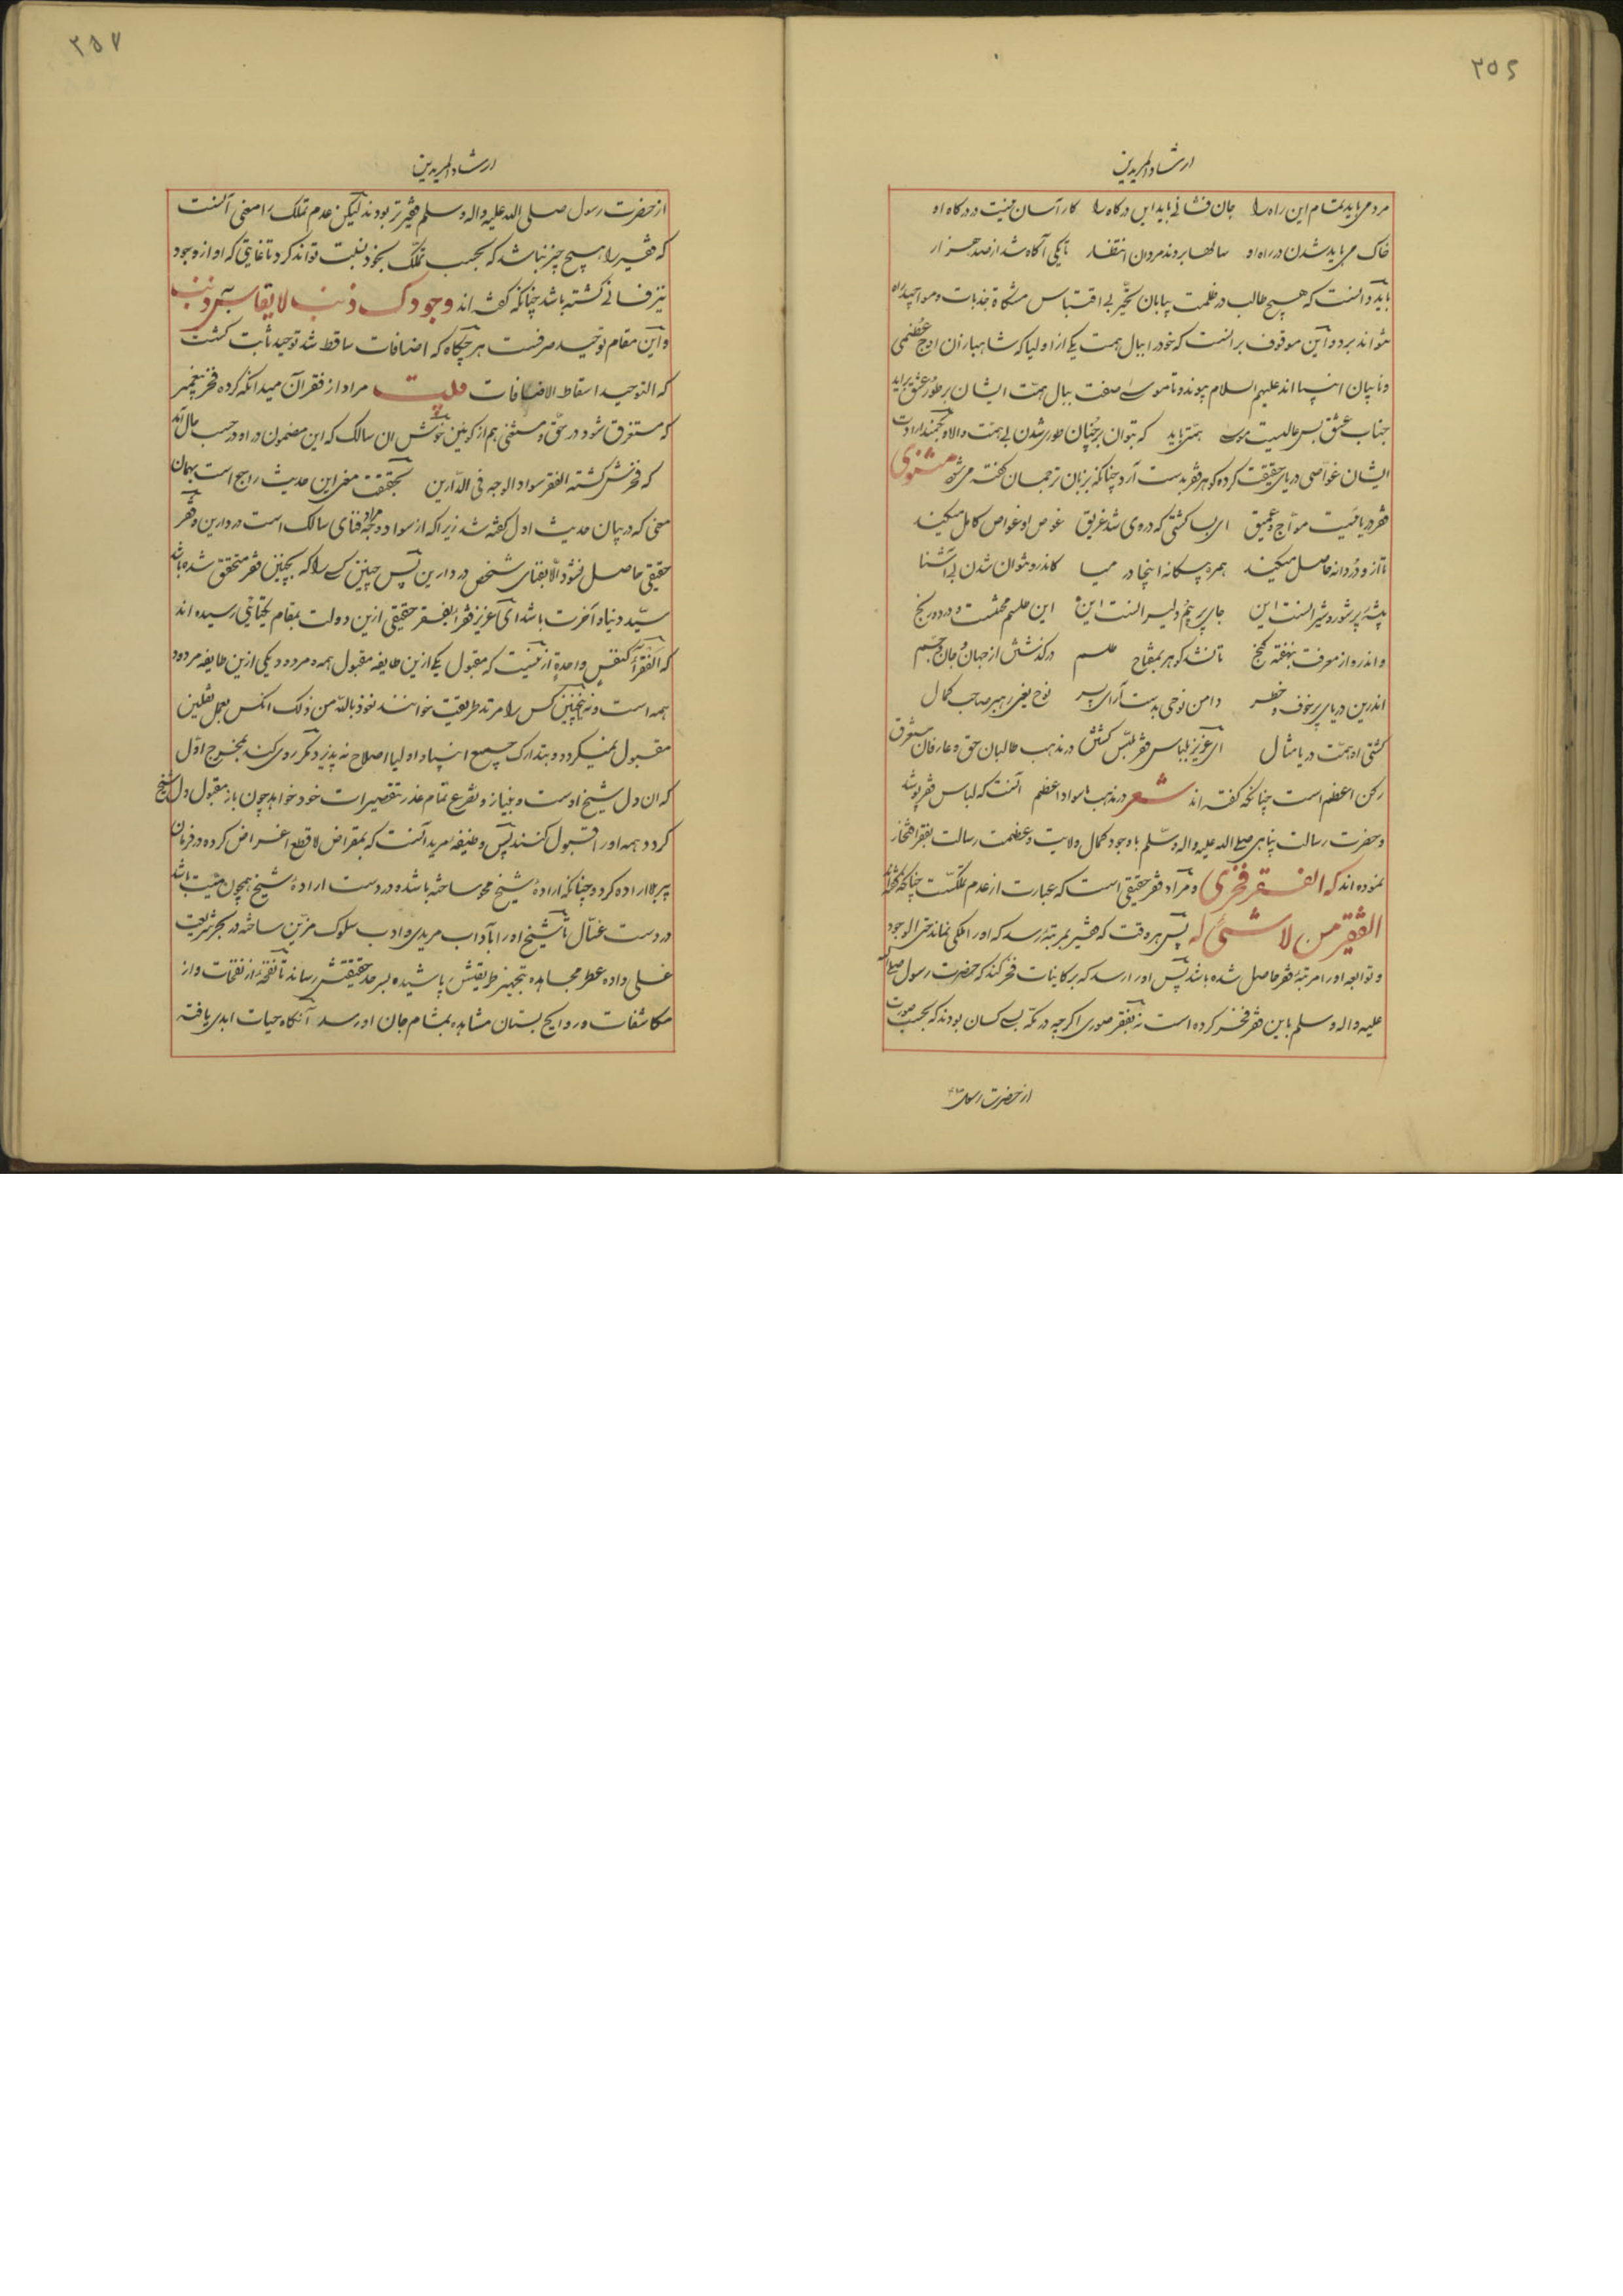 ۲۵۶
ارشاد المریدین
مردمی باید تمام این راه را جان فشانی باید این درگاه را کار آسان نیست در درگاه او
خاک می باید شدن در راه او سالها بردند مردان انتظار تا یکی آگاه شد از صد هزار
باید دانست که هیچ طالب در ظلمت بیابان تحیّر بی اقتباس مشکاة جذبات و مواهب راه
نتواند برد و این موقوف بر آنست که خود را ببال همت یکی از اولیا که شاهبازان اوج عظمی
و نایبان انبیا اند علیهم السلام پیوندد تا موسی صفت ببال همّت ایشان بر طور عشق برآید
جناب عشق بس عالیست موسی همّتی باید که بتوان بر چنان طوری شدن بی همت والا و
ایشان غوّاصی دریای حقیقت کرده گوهر فقر بدست آرد چنانکه بزبان ترجمان گفته می شود مثنوی
فقر دریائیست موّاج و عمیق ای بسا کشتی که در وی شد غریق غوص او غواص کامل میکند
تا از و دُر دانه حاصل میکند همره بیگانه اینجا در میا کاندرو نتوان شدن بی آشنا
بیشهٔ پر شور و شیرانست این جای پر بیم دلیرانست این این طلسم محنتست و درد و رنج
و اندرو از معرفت بنهفته گنج تا نشد گوهر بمفتاح طلسم درگذشتن از جهان و جان و جسم
اندرین دریای پرخوف و خطر دامن نوحی بدست آر ای پسر نوح یعنی رهبر صاحب کمال
کشتی او همّت دریا مثال ای عزیز بلباس فقر ملبّس گشتن در مذهب طالبان حق و عارفان
رکن اعظم است چنانکه گفته اند شعر در مذهب ما سواد اعظم آنست که لباس فقر پوشد
و حضرت رسالت پناهی صلی الله علیه و اله و سلّم با وجود کمال ولایت و عظمت رسالت بفقر افتخار
نموده اند که الفقر فخری و مراد فقر حقیقی است که عبارت از عدم تملّکست چنانکه گفته اند
الفقیر من لا شئ له پس هر وقت که فقیر بمرتبهٔ رسد که او را ملکی نماند حتی الوجود
و توابعه او را مرتبهٔ فقر حاصل شده باشد پس او را رسد که بر کاینات فخر کند که حضرت رسول صلی الله
علیه و اله و سلم باین فقر فخر کرده است نه بفقر صوری اگرچه در مکّه بسی کسان بودند که بحسب صورت
از حضرت رسول
۲۵۷
ارشاد المریدین
از حضرت رسول صلی الله علیه و اله و سلم فقیرتر بودند لیکن عدم تملک را معنی آنست
که فقیر را هیچ چیز نباشد که بحسب تملّک بخود نسبت تواند کرد تا غایتی که او از وجود
نیز فانی گشته باشد چنانکه گفته اند وجودک ذنب لا یقاس به ذنب
و این مقام توحید صرفست هر چگاه که اضافات ساقط شد توحید ثابت گشت
که التوحید اسقاط الاضافات فلیت مراد از فقر آن میدانکه کرده فخر پیغمبر
که مستغرق شود در حقّ و مستغنی هم از کونین خوش ان سالک که این مضمون در او در حسب حال آمد
که فخرش گشته الفقر سواد الوجه فی الدّارین بحقیقت معنی این حدیث راجع است بهمان
معنی که در بیان حدیث اول گفته شد زیرا که مراد از سواد وجه فنای سالک است در دارین و فقر
حقیقی حاصل نشود الّا بفنای شخص در دارین پس چنین کسی را که بچنین فقر متحقق شده باشد
سیّد دنیا و آخرت باشد ای عزیز فقرا بفقر حقیقی ازین دولت بمقام یکتایی رسیده اند
که الفقرآء کنفس واحدة ازینست که مقبول یکی ازین طایفه مقبول همه و مردود یکی ازین طایفه مردود
همه است و اینچنین کس را مرتد طریقت خوانند نعوذ بالله من ذلک انکس بعمل ثقلین
مقبول نمیگردد و بتدارک جمیع انبیا و اولیا اصلاح نه پذیرد مگر روی کند بمخرج اوّل
که ان دل شیخ اوست و بنیاز و تضرع تمام عذر تقصیرات خود خواهد چون باز مقبول دل شیخ
گردد همه او را قبول کنند پس وظیفهٔ مرید آنست که بمقراض لا قطع اغراض کرده در فرمان
پیر بلا اراده گردد چنانکه ارادهٔ شیخ محو ساخته باشد و در دست ارادهٔ شیخ همچون میّت باشد
در دست غسّال تا شیخ او را بآداب مریدی و ادب سلوک مزیّن ساخته در بحر شریعت
غسلی داده عطر مجاهده بتجهیز طریقتش پاشیده بسرحد حقیقتش رساند تا نفحهٔ از نفحات و از
مکاشفات و روایح بستان مشاهده بمشام جان او رسد آنگاه حیات ابدی یافته